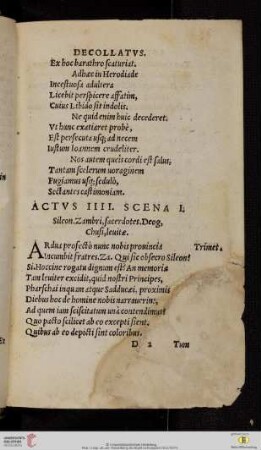 DECOLLATVS.
Ex hoc barathro scaturiat.
Adhæc in Herodiade
Incestuosa adultera
Licebit perspicere affatim,
Cuius Libido sit indolis.
Ne quid enim huic decederet.
Vt hunc exatiaret probè,
Est persecuta usq; ad necem
Iustum Ioannem crudeliter.
Nos autem queis cordi est salus,
Tantam scelerum uoraginem
Fugiamus usq; sedulò,
Sectantes castimoniam.
ACTVS IIII. SCENA I.
Sileon. Zambri, sacerdotes. Deog,
Chusi, leuitæ.
ARdua profectò nunc nobis prouincia Trimet.
Incumbit fratres. Za. Qui sic obsecro Sileon?
Si. Hoccine rogatu dignum est? An memoria
Tam leuiter excidit, quid nostri Principes,
Pharisæi inquam atque Sadducæi, proximis
Diebus hoc de homine nobis narrauerint,
Ad quem iam sciscitatum unà contendimus?
Quo pacto scilicet ab eo excepti sient,
Quibus ab eo depicti sint coloribus.
D 2 Tum
Et